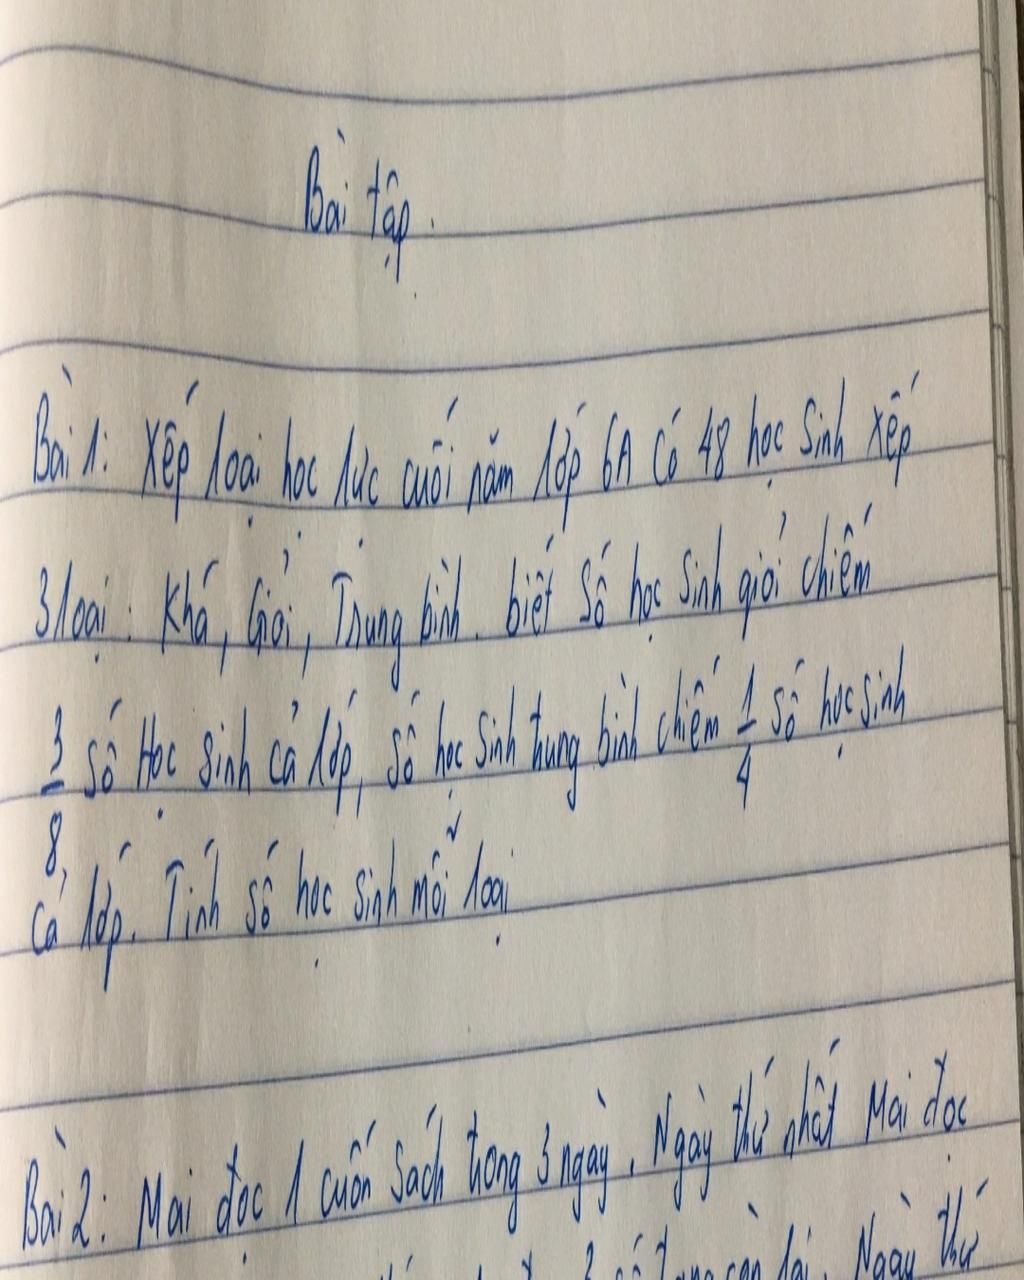 Bài tập.
Bài 1: Xếp loại học lực cuối năm lớp 6A có 48 học sinh xếp
3 loại: Khá, Giỏi, Trung bình. biết số học sinh giỏi chiếm
3/8 số Học sinh cả lớp, số học sinh trung bình chiếm 1/4 số học sinh
cả lớp. Tính số học sinh mỗi loại
Bài 2: Mai đọc 1 cuốn sách trong 3 ngày. Ngày thứ nhất Mai đọc
số trang còn lại. Ngày thứ